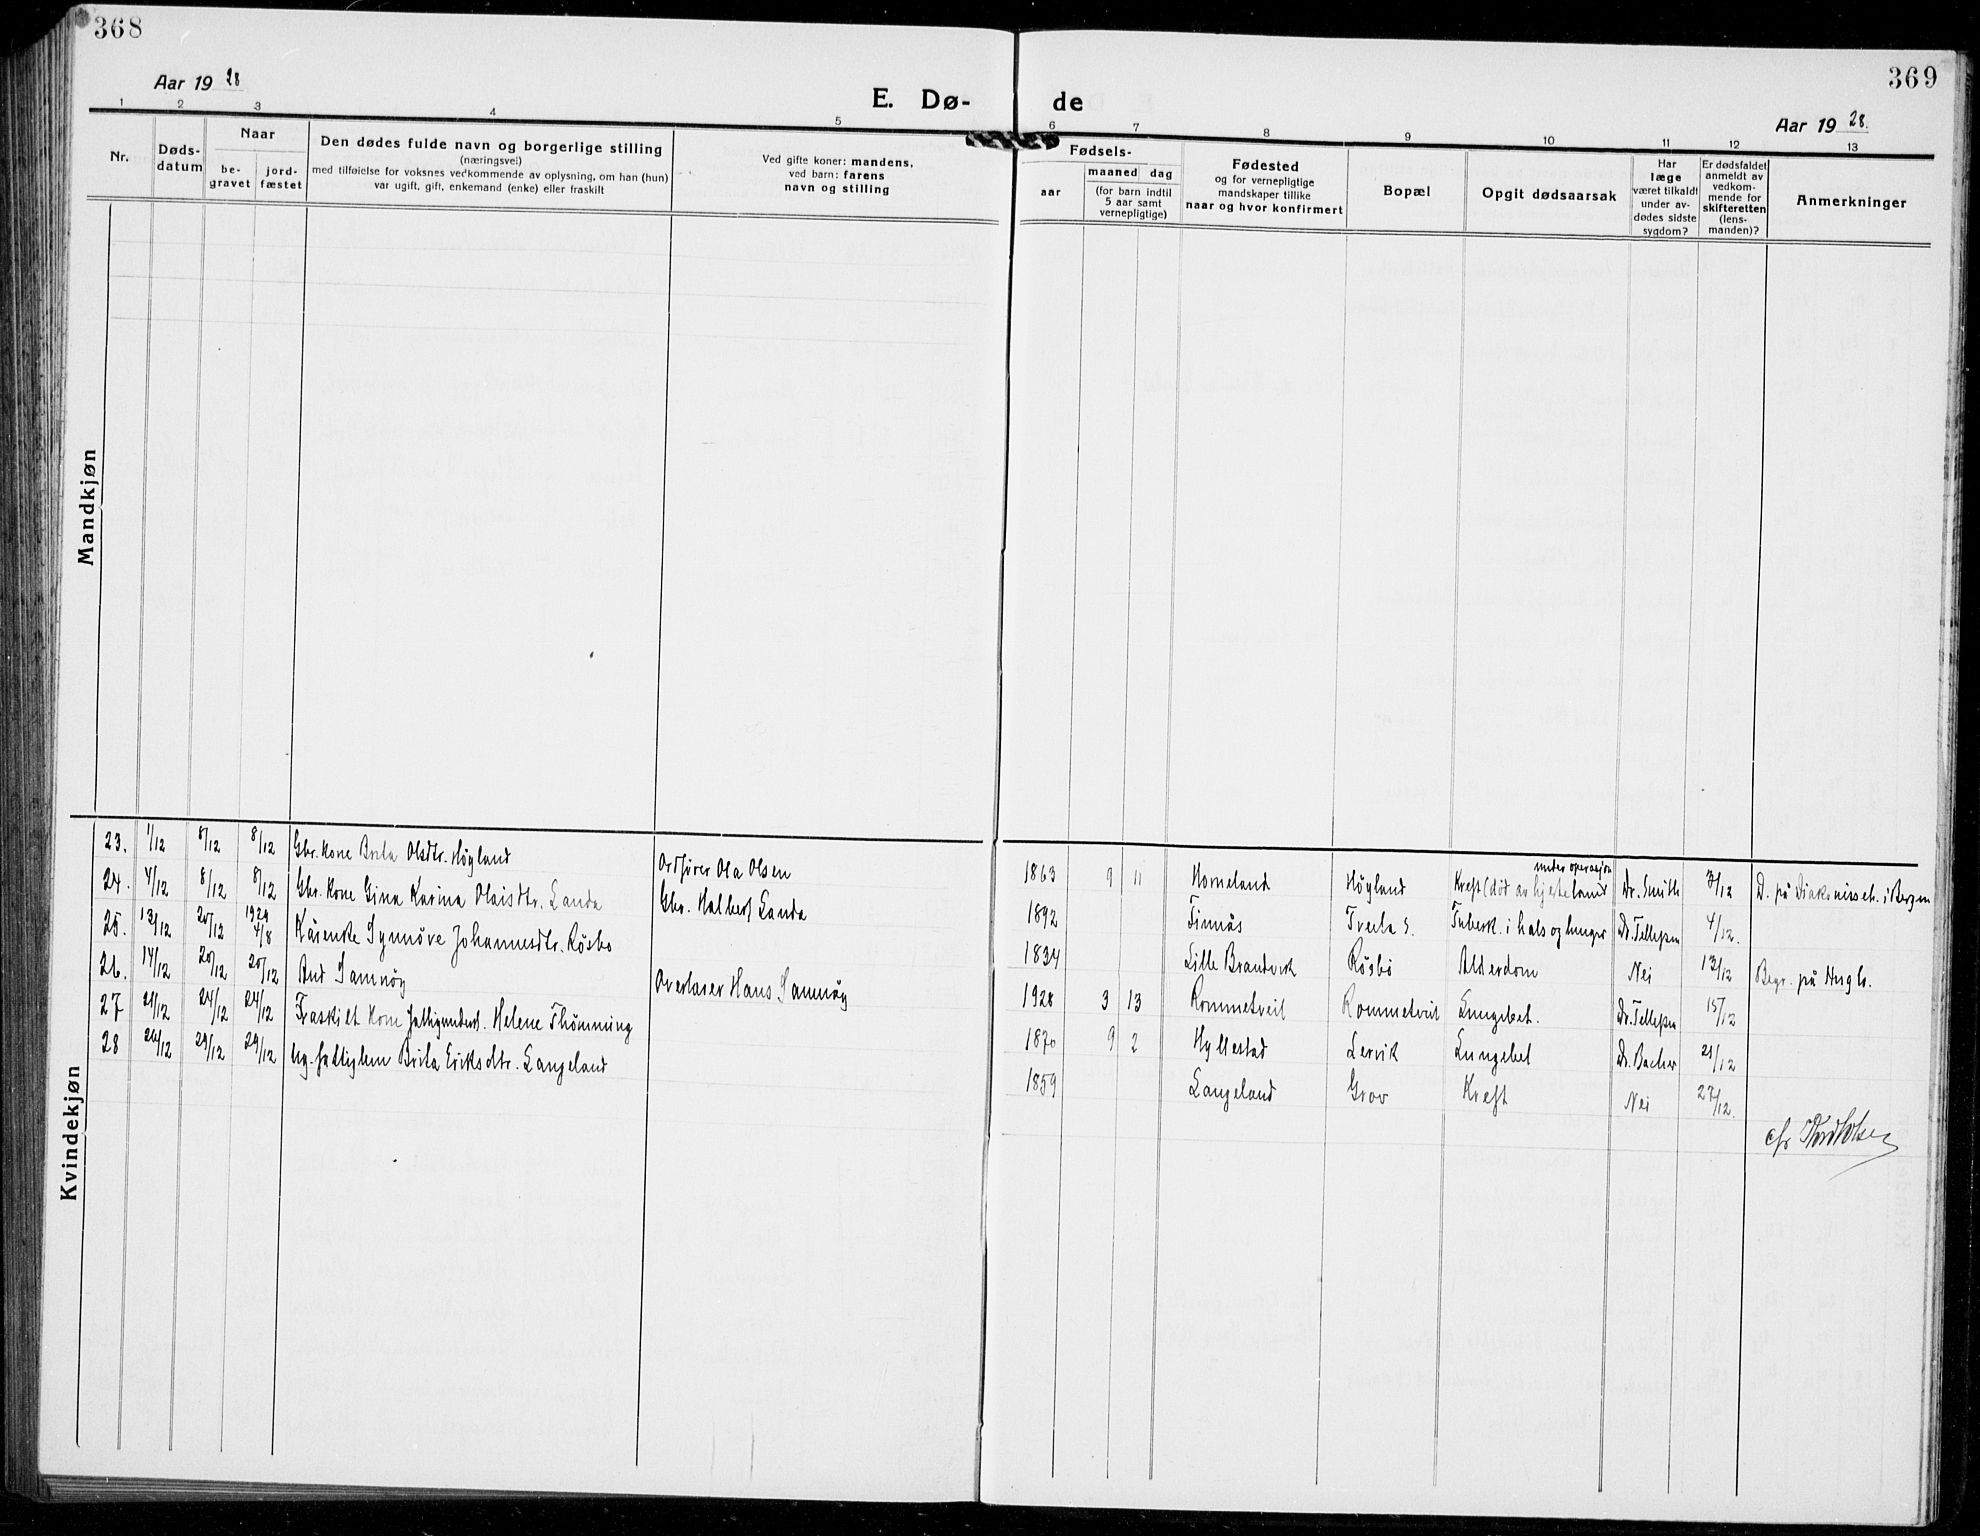 368
Aar 19 28
E. Dø-
1 2 3 4 5
Nr.
Døds-
datum
Naar
be-
gravet
jord-
fæstet
Den dødes fulde navn og borgerlige stilling
(næringsvei)
med tilføielse for voksnes vedkommende av oplysning, om han (hun)
var ugift, gift, enkemand (enke) eller fraskilt
Ved gifte koner: mandens,
ved barn: farens
navn og stilling
Mandkjøn
Kvindekjøn
23. 1/12 8/12 8/12 Gbr. kone Brita Olsdtr. Høyland Ordfører Ola Olsen
24. 4/12 8/12 8/12 Gbr. Kone Gina Karina Olaisdtr. Landa Gbr. Halbert Landa
25. 13/12 20/12 1929 4/8 Synnöve Johannesdtr. Rösbø
26. 14/12 20/12 20/12 Aud Samnöy Overlærer Hans Samnöy
27 21/12 24/12 24/12 Fraskilt Kone Helene Thömming
28 24/12 29/12 29/12 Brita Eriksdtr. Langeland
369
Aar 19 28.
de
6 7 8 9 10 11 12 13
Fødsels-
aar
maaned dag
(for barn indtil
5 aar samt
vernepligtige)
Fødested
og for vernepligtige
mandskaper tillike
naar og hvor konfirmert
Bopæl
Opgit dødsaarsak
Har
læge
været tilkaldt
under av-
dødes sidste
sygdom?
Er dødsfaldet
anmeldt av
vedkom-
mende for
skifteretten
(lens-
manden)?
Anmerkninger
under operasjon
1863 9 11 Homeland Höyland Kreft (död av hjertelamd Dr. Smith 3/12 D. på Diakonisseh. i Bergen
1892 Finnås Tveita S. Tuberk. i hals og lunger Dr. Tellefsen 4/12.
1834 Lille Brandvik Rösbö Alderdom Nei 13/12 Begr. på Huglo.
1928 3 13 Rommetveit Rommetveit Lungebet. Dr. Tellefsen 15/12
1870 9 2 Hyllestad Lervik Lungebet Dr. Backer 21/12
1859 Langeland Grov Kreft Nei 27/12.